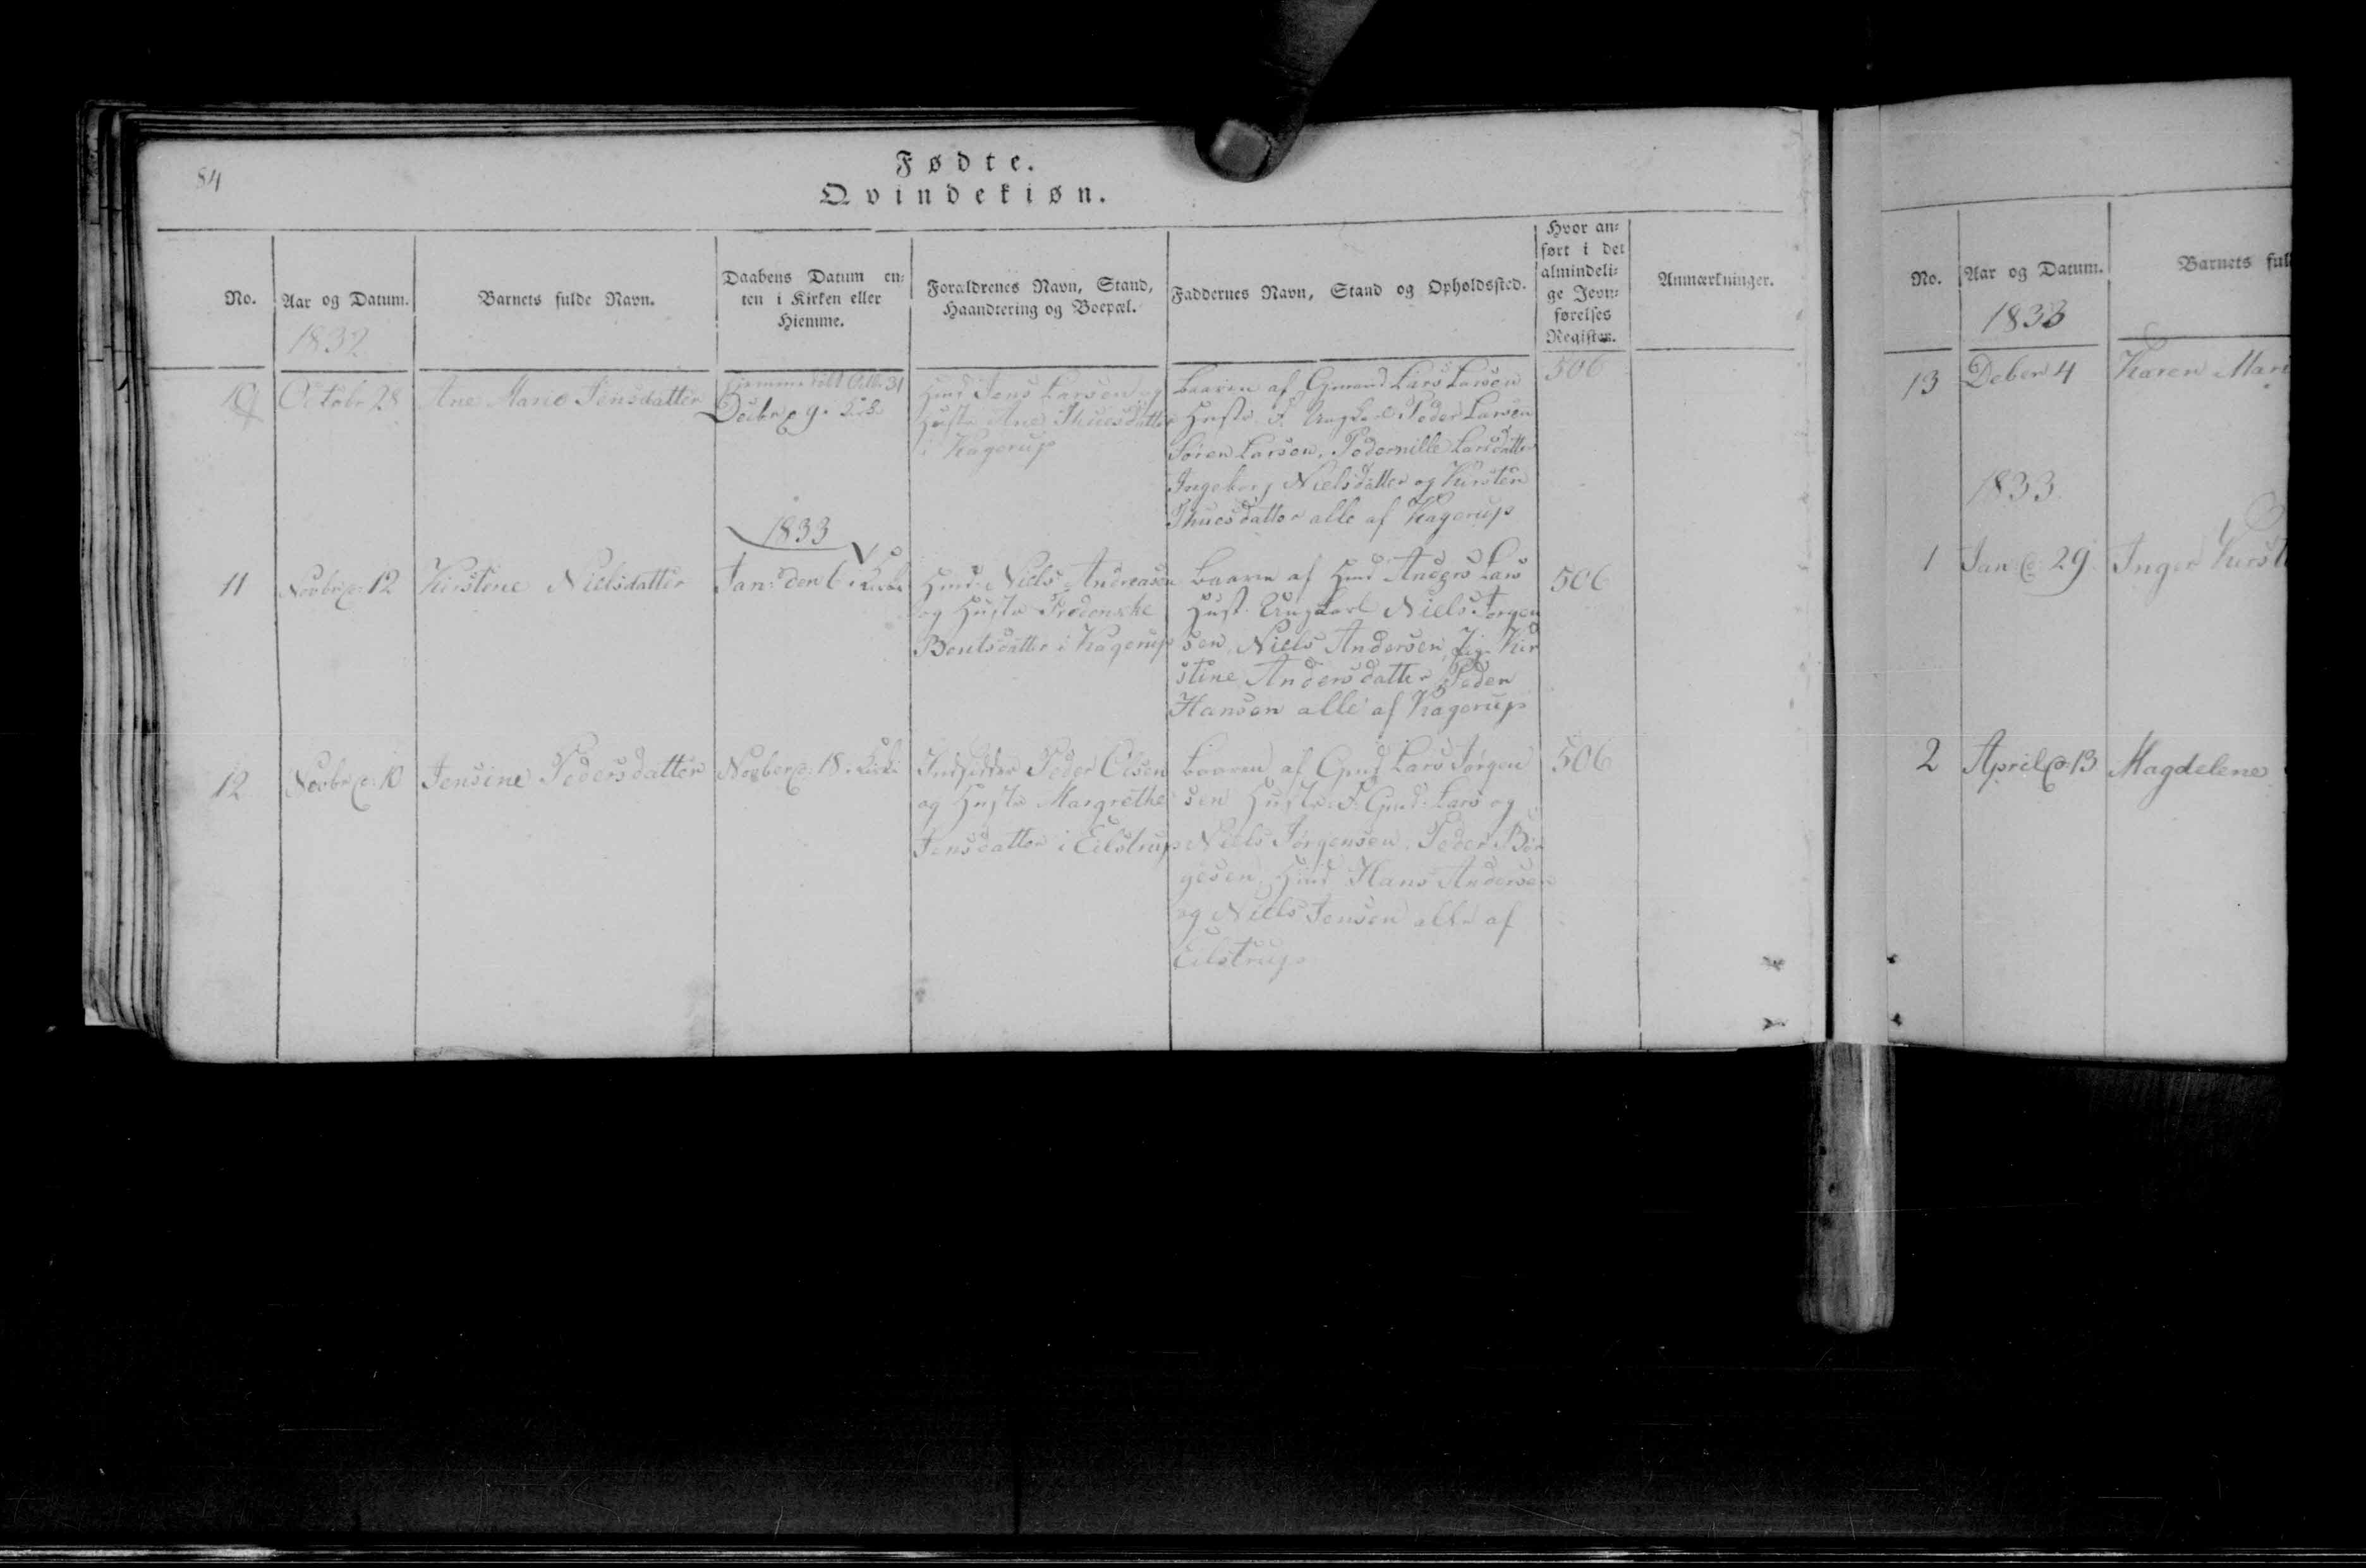 84
Fødte.
Qvindekiøn.
No.
Aar og Datum.
1832
Barnets fulde Navn.
Daabens Datum en-
ten i Kirken eller
Hiemme.
Forældrenes Navn, Stand,
Haandtering og Boepæl.
Faddernes Navn, Stand og Opholdssted.
Hvor an-
ført i det
almindeli-
ge Jevn-
førelses
Register.
Anmærkninger.
10
Octobr 28
Ane Marie Jensdatter
Hjemmedøbt Octbr 31
Decbr 9. Kirke
Hmd Jens Larsen og
Hustr Ane Thuesdatter
i Kagerup
Baaren af Gmand Lars Larsen
Hustr F. Ungkarl Peder Larsen
Søren Larsen, Pedernille Larsdatter
Ingeborg Nielsdatter og Kirsten
Thuesdatter alle af Kagerup
506
11
Novbr 12
Kirstene Nielsdatter
1833
Jan: den 6 i Kirke
Hmd: Niels Andreasen
og Hustr Frederikke
Bentsdatter i Kagerup
Baaren af Hmd Anders Lars
Hust: Ungkarl Niels Jørgen
sen, Niels Andersen, Pig: Kir
stine Andersdatter, Peder
Hansen alle af Kagerup
506
12
Novbr 10
Jensine Pedersdatter
Novber 18 i Kirke
Indsidder Peder Olsen
og Hustr Margrethe
Jensdatter i Eilstrup
Baaren af Gmd Lars Jørgen
sen Hustr: F: Gmd: Lars og
Niels Jørgensen, Peder Bør
gesen, Hmd Hans Andersen
og Niels Jensen alle af
Eilstrup
506
No.
Aar og Datum.
1833
Barnets ful
13
Deber 4
Karen Mari
1833
1
Jan 29
Inger Kirst
2
April 13
Magdelene